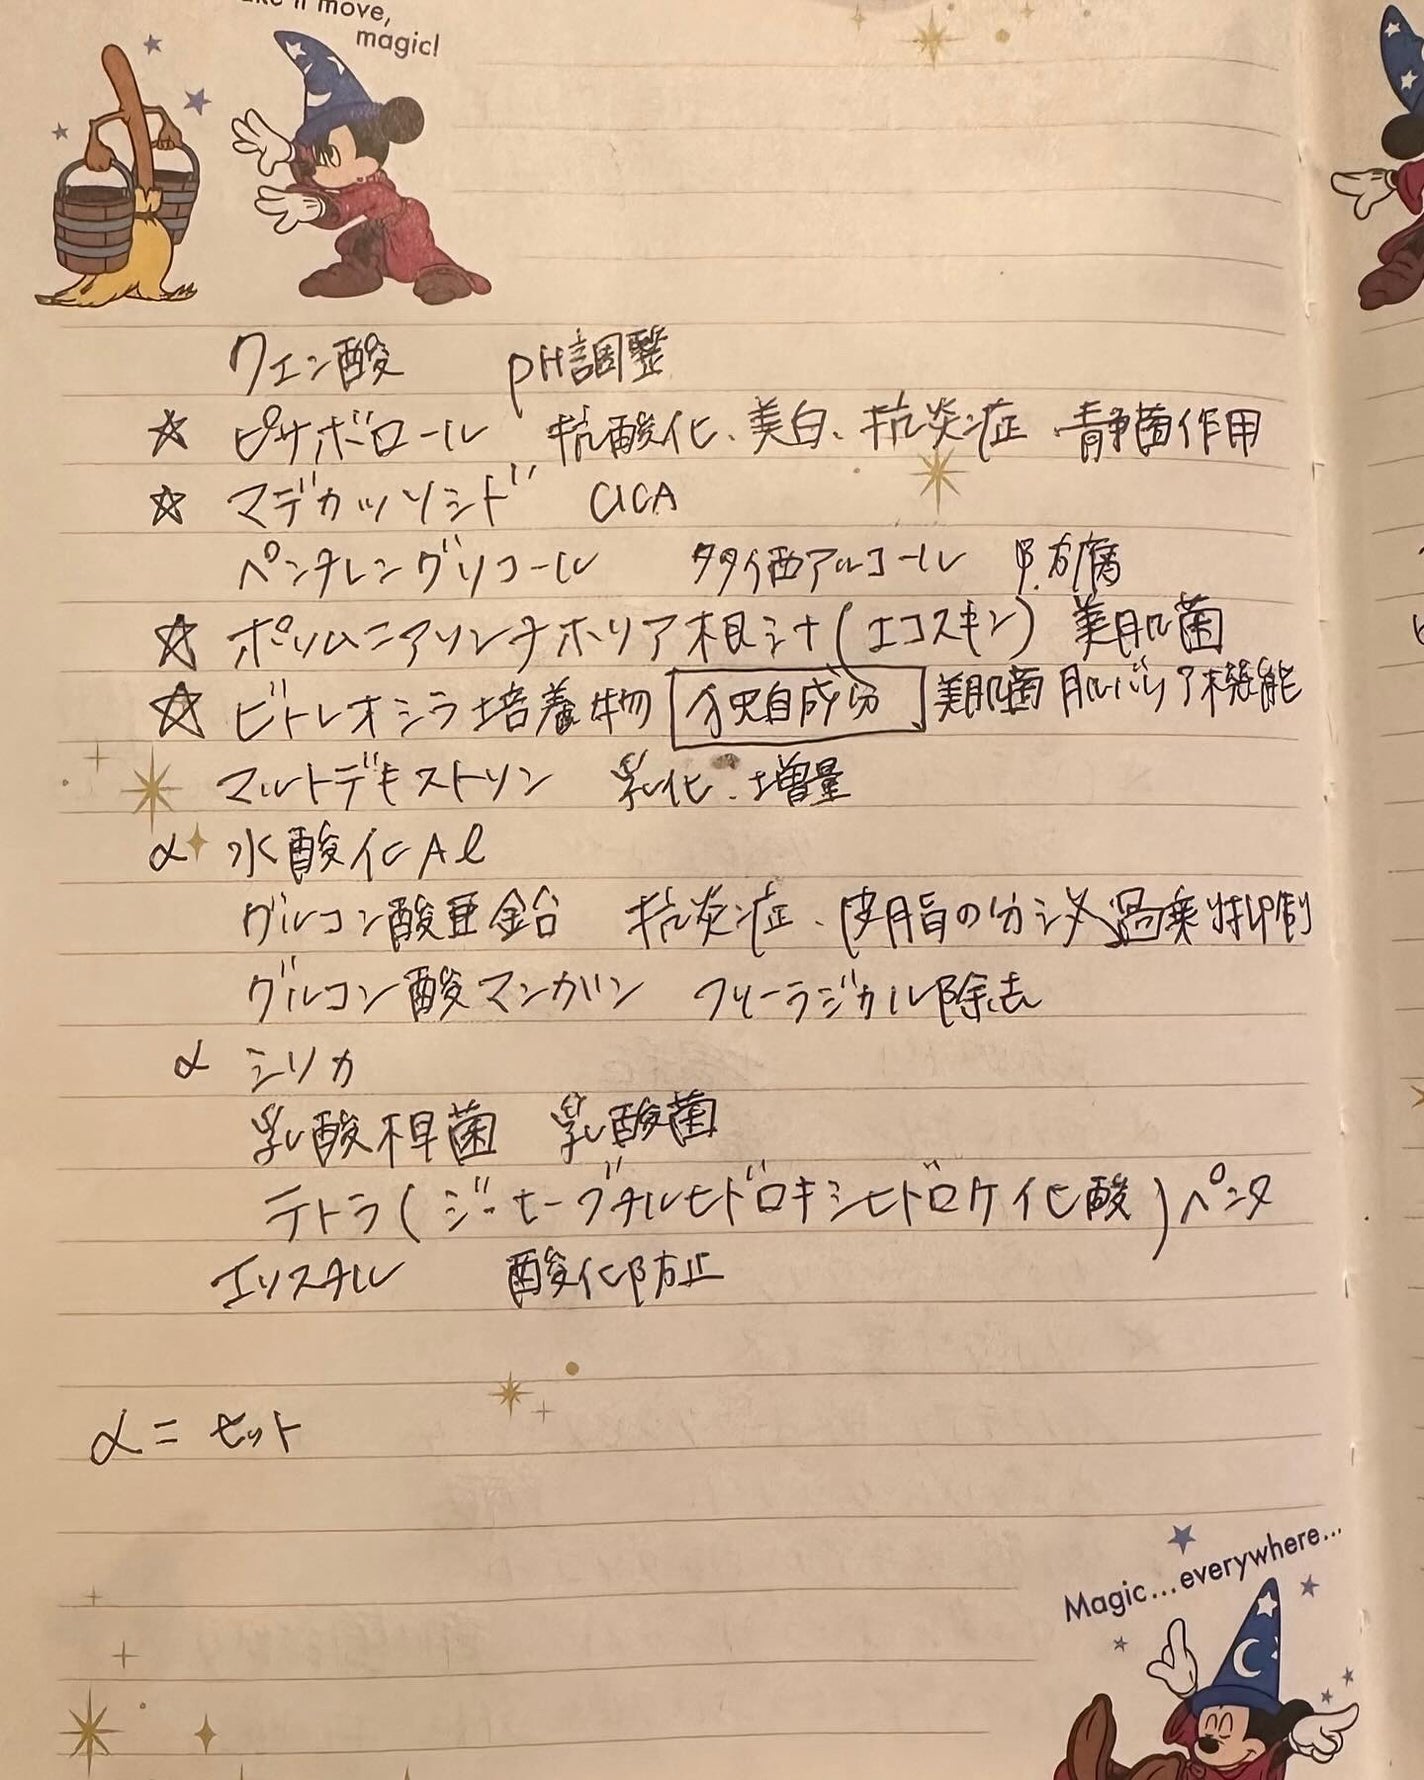 move,
magic!
クエン酸 pH調整
☆ ビサボロール 抗酸化、美白、抗炎症 静菌作用
☆ マデカッソシド CICA
ペンチレングリコール 多価アルコール 防腐
☆ ポリムニアソンチホリア根汁(エコスキン) 美肌菌
☆ ビトレオシラ培養物 独自成分 美肌菌 肌バリア機能
マルトデキストリン 乳化、増量
α 水酸化Al
グルコン酸亜鉛 抗炎症、皮脂の分泌過乗抑制
グルコン酸マンガン フリーラジカル除去
α シリカ
乳酸桿菌 乳酸菌
テトラ(ジ-t-ブチルヒドロキシヒドロケイ化酸)ペンタ
エリスチル 酸化防止
α = セット
Magic...everywhere...